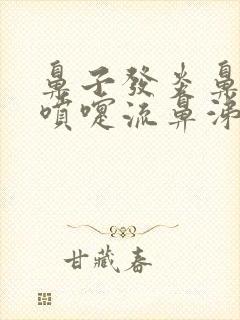 鼻子發炎鼻
噴嚏流鼻涕
甘藏春